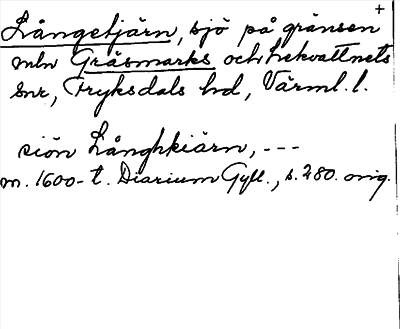 +
Långetjärn, sjö på gränsen
mln Gräsmarks och Lekvattnets
snr, Fryksdals hd, Värml. l.
siön Långhkiärn, ---
m. 1600-t. Diarium Gyll., s. 280. orig.